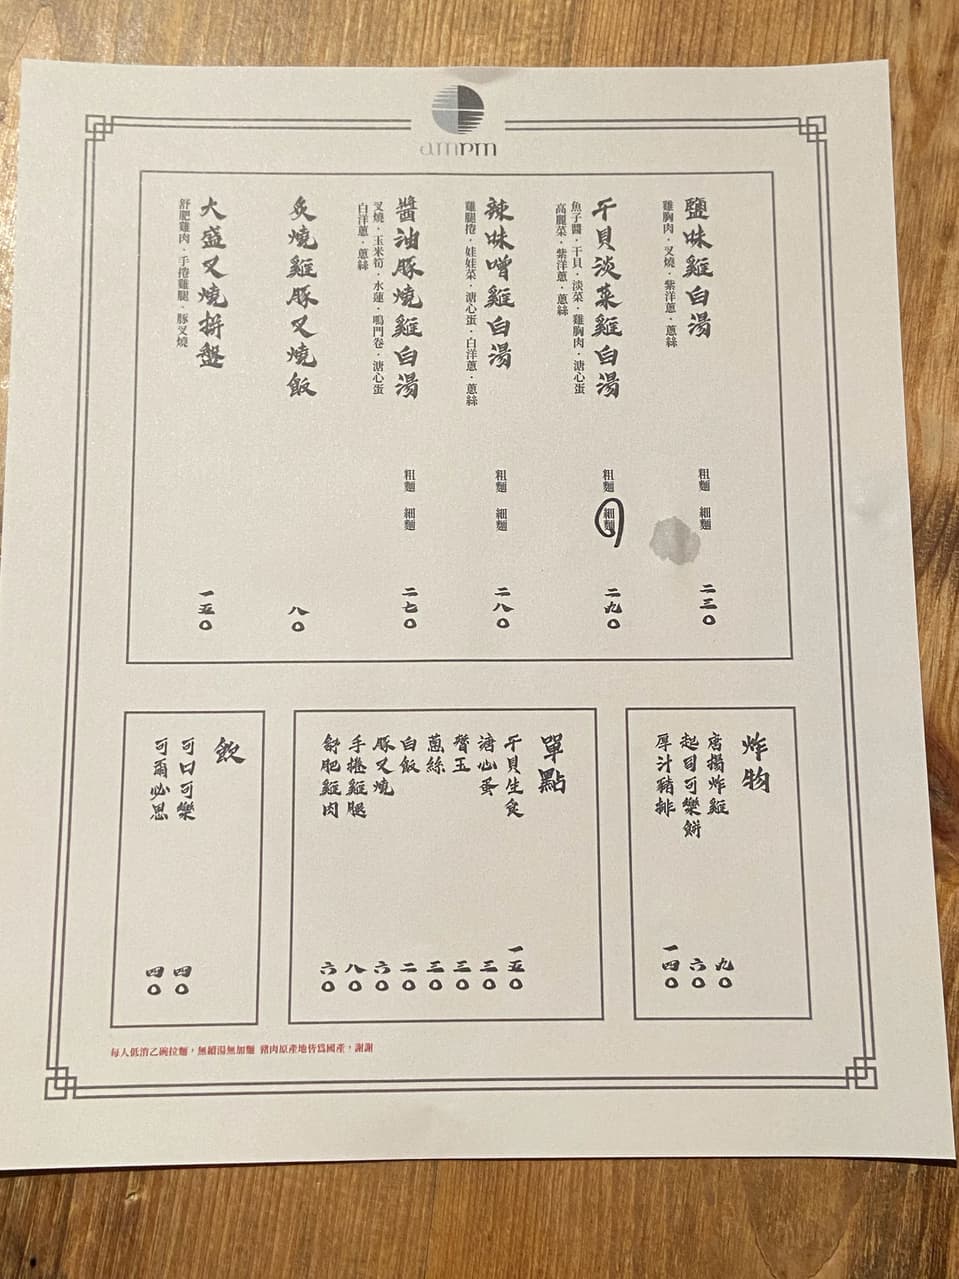 amrm
鹽味雞白湯
雞胸肉．叉燒．紫洋蔥．蔥絲
粗麵 細麵
二三〇
干貝淡菜雞白湯
魚子醬．干貝．淡菜．雞胸肉．溏心蛋
高麗菜．紫洋蔥．蔥絲
粗麵 細麵
二九〇
辣味噌雞白湯
雞腿捲．娃娃菜．溏心蛋．白洋蔥．蔥絲
粗麵 細麵
二八〇
醬油豚燒雞白湯
叉燒．玉米筍．水蓮．鳴門卷．溏心蛋
白洋蔥．蔥絲
粗麵 細麵
二七〇
炙燒雞豚叉燒飯
八〇
大盛叉燒拼盤
舒肥雞肉．手捲雞腿．豚叉燒
一五〇
炸物
唐揚炸雞
九〇
起司可樂餅
六〇
厚汁豬排
一四〇
單點
干貝生食
一五〇
溏心蛋
三〇
替玉
三〇
蔥絲
三〇
白飯
二〇
豚叉燒
六〇
手捲雞腿
八〇
舒肥雞肉
六〇
飲
可口可樂
四〇
可爾必思
四〇
每人低消乙碗拉麵，無續湯無加麵 豬肉原產地皆為國產，謝謝